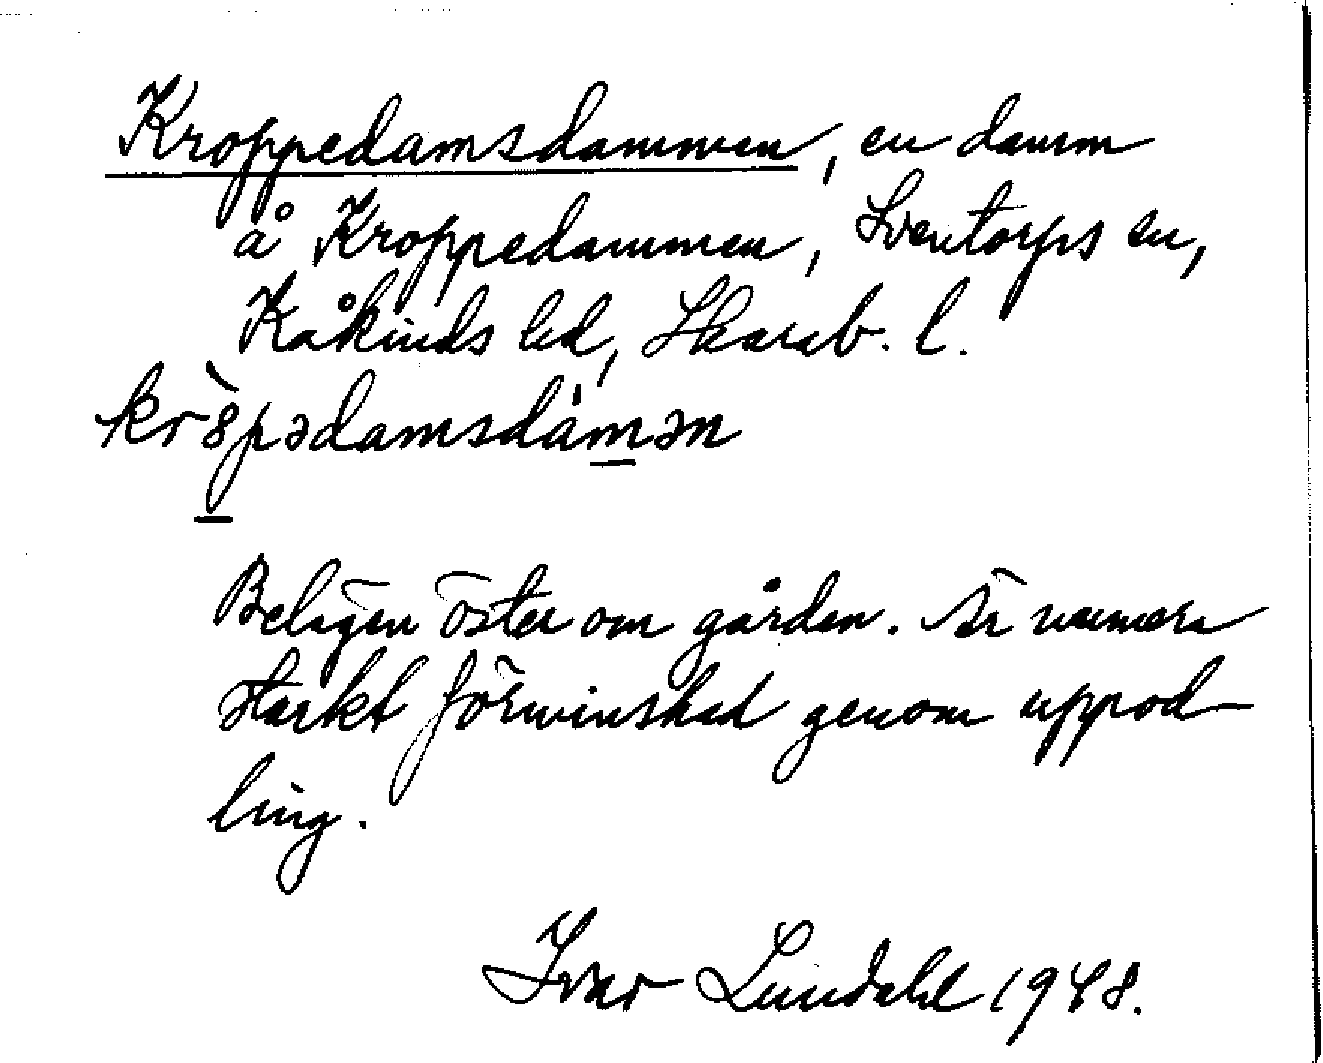 Kroppedamsdammen, en damm
å Kroppedammen, Sventorps sn,
Kåkinds hd, Skarab. l.
kr8̀pədamsdàmən
Belägen öster om gården. Är numera
starkt förminskad genom uppod-
ling.
Ivar Lundahl 1948.